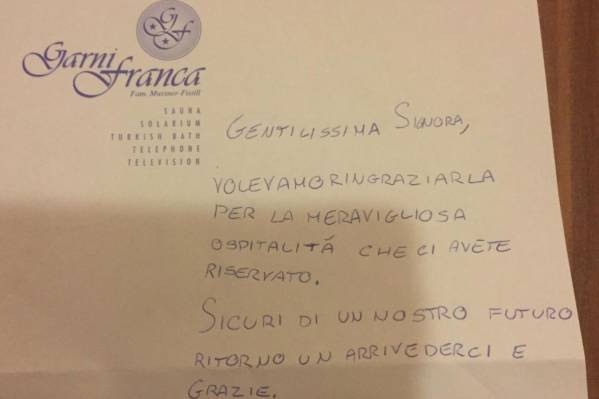 GF
Garni
Franca
Fam. Mussner-Fistill
SAUNA
SOLARIUM
TURKISH BATH
TELEPHONE
TELEVISION
GENTILISSIMA SIGNORA,
VOLEVAMO RINGRAZIARLA
PER LA MERAVIGLIOSA
OSPITALITÁ CHE CI AVETE
RISERVATO.
SICURI DI UN NOSTRO FUTURO
RITORNO UN ARRIVEDERCI E
GRAZIE.